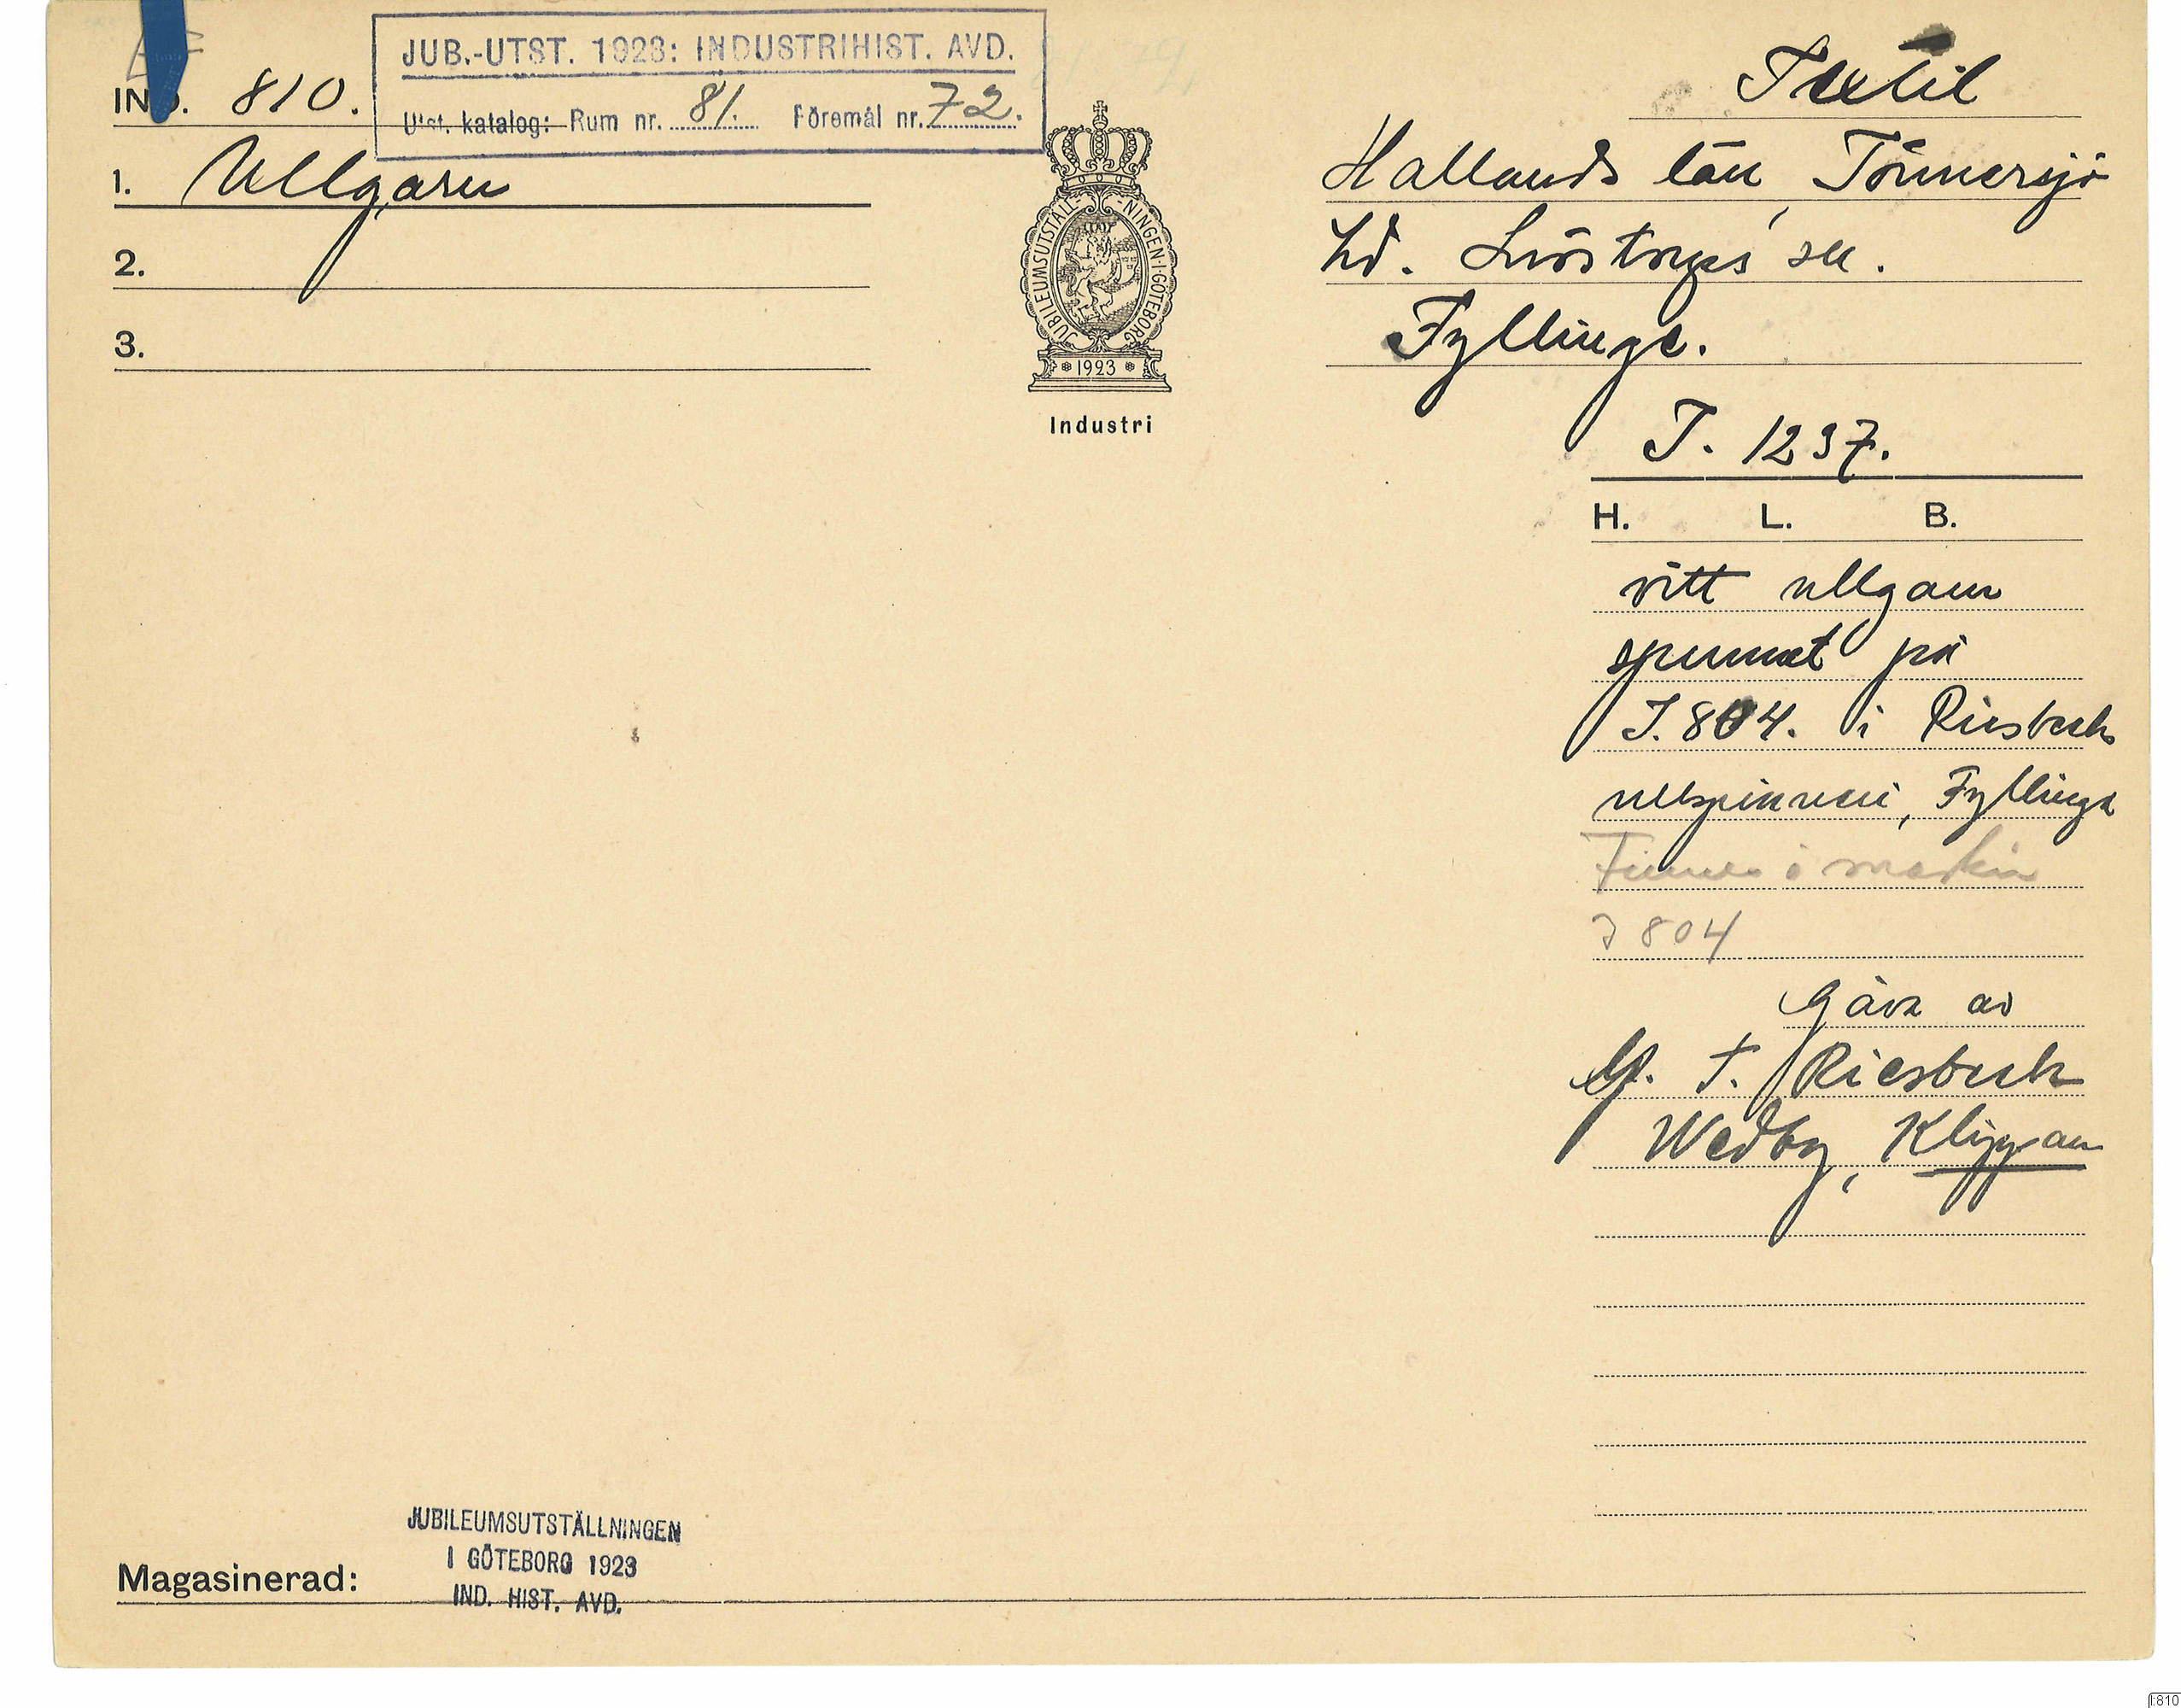 JUB.-UTST. 1923: INDUSTRIHIST. AVD.
Utst. katalog: Rum nr. 81. Föremål nr. 72.
IND. 810.
1. Ullgarn
2.
3.
JUBILEUMSUTSTÄLLNINGEN·I·GÖTEBORG
1923
Industri
Textil
Hallands län, Tönnersjö
hd. Snöstorps sn.
Fyllinge.
T. 1237.
H. L. B.
vitt ullgarn
spunnet på
I.804. i Riesbeck
ullspinneri, Fyllinge
Finnes i maskin
I 804
Gåva av
T. Riesbeck
Wedby, Klippan
JUBILEUMSUTSTÄLLNINGEN
I GÖTEBORG 1923
IND. HIST. AVD.
Magasinerad:
I:810